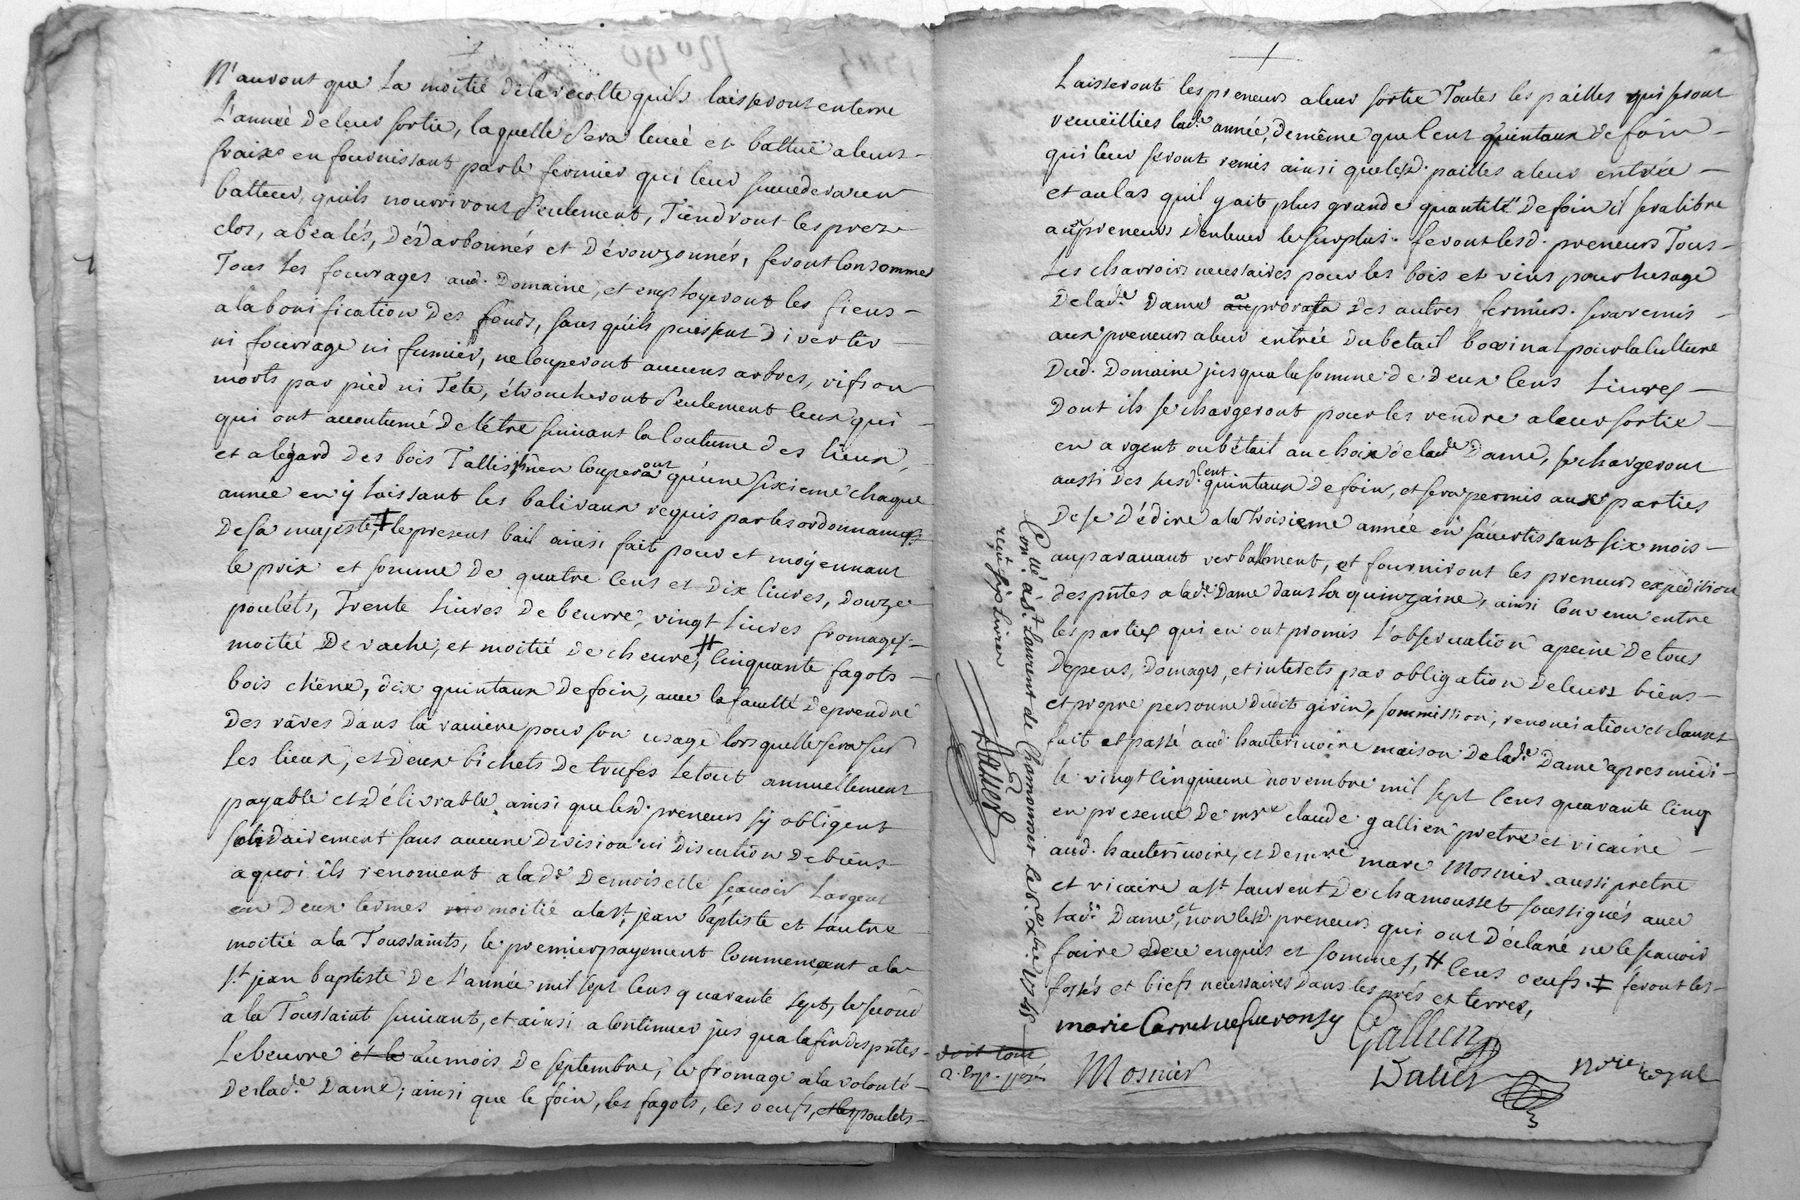 N'auront que la moitié de la recolte quils laisseront enterre
L'année de leur sortie, laquelle sera levée et battuë a leurs
fraix en fournissant par le fermier qui leur succedera un
batteur, quils nourriront seulement, Tiendront les prez
clos, abealés, dédarbonnés et dérouzonnés, feront Consommer
Tous les fourrages aud. Domaine, et employeront les fiens
a la bonification des fonds, sans quils puissent divertir
ni fourrage ni fumier, ne Couperont aucuns arbres, vifs ou
morts par pied ni Tete, étroncheront seulement Ceux qui
qui ont accoutumé de l'être suivant la Coutume des lieux,
et a légard des bois Tallis, n'en Couperont quune sixieme chaque
année en y laissant les balivaux requis par les ordonnances
de sa majesté, ‡ le present bail ainsi fait pour et moyennant
le prix et somme de quatre Cens et Dix livres, Douze
poulets, Trente livres de beurre, vingt livres fromages
moitié de vache, et moitié de chevre, # Cinquante fagots
bois chêne, dix quintaux de foin, avec la faculté de prendre
des raves dans la raviere pour son usage lors quelle sera sur
les lieux, et deux bichets de trufes le tout annuellement
payable et délivrable ainsi que lesd. preneurs sy obligent
solidairement sans aucune division ni discution de biens
a quoi ils renoncent a lad.e Demoiselle sçavoir largent
en deux termes moitié a la st. jean baptiste et l'autre
moitié a la Toussaints, le premier payement Commencant a la
st. jean baptiste de l'année mil sept Cens quarante sept, le second
a la Toussaint suivant, et ainsi a Continuer jus qua la fin des pntes
Le beurre et le au mois de septembre, le fromage a la volonté
de lad.e Dame; ainsi que le foin, les fagots, les oeufs, et les poulets
Laisseront les preneurs a leur sortie Toutes les pailles qui seront
recueïllies lad.e année, de même que Cent quintaux de foin
qui leur seront remis ainsi que lesd. pailles a leur entrée
et au Cas quil y ait plus grande quantité de foin il sera libre
aux preneurs d'enlever le surplus. feront lesd. preneurs Tous
les charrois necessaires pour les bois et vins pour lusage
de lad.e Dame au a prorata des autres fermiers. sera remis
aux preneurs a leur entrée du betail bovinat pour la Culture
Dud. Domaine jusqua la somme de Deux Cens Livres
Dont ils se chargeront pour les rendre a leur sortie
en argent ou bétail au choix de lad.e Dame, se chargeront
aussi des susd. Cent quintaux de foin, et sera permis aux parties
De se Dédire a la Troisieme année en s'avertissant six mois
auparavant verballement, et fourniront les preneurs expedition
des pntes a lad.e Dame dans la quinzaine, ainsi Convenu entre
les parties qui en ont promis l'observation a peine de tous
Depens, Domages, et interets par obligation de leurs biens
et propre personne dudit givin, soumission, renonciation et clauses
fait et passé aud. hauterivoire maison de lad.e Dame apres midi
le vingt Cinquieme novembre mil sept Cens quarante Cinq
en presence de mre claude gallien pretre et vicaire
aud. hauterivoire, et de mre marc Mosnier aussi pretre
et vicaire a st. laurent de chamousset soussignés avec
lad.e Dame, et non lesd. preneurs qui ont Déclaré ne le scavoir
faire de ce enquis et sommés, # Cens oeufs. ‡ feront les
fossés et biefs necessaires dans les prés et terres,
Marie Carret Gallien
Mosnier Dalier Nre royal
Con.lé a st. Laurent de Chamousset le
reçu six livres
Dalier